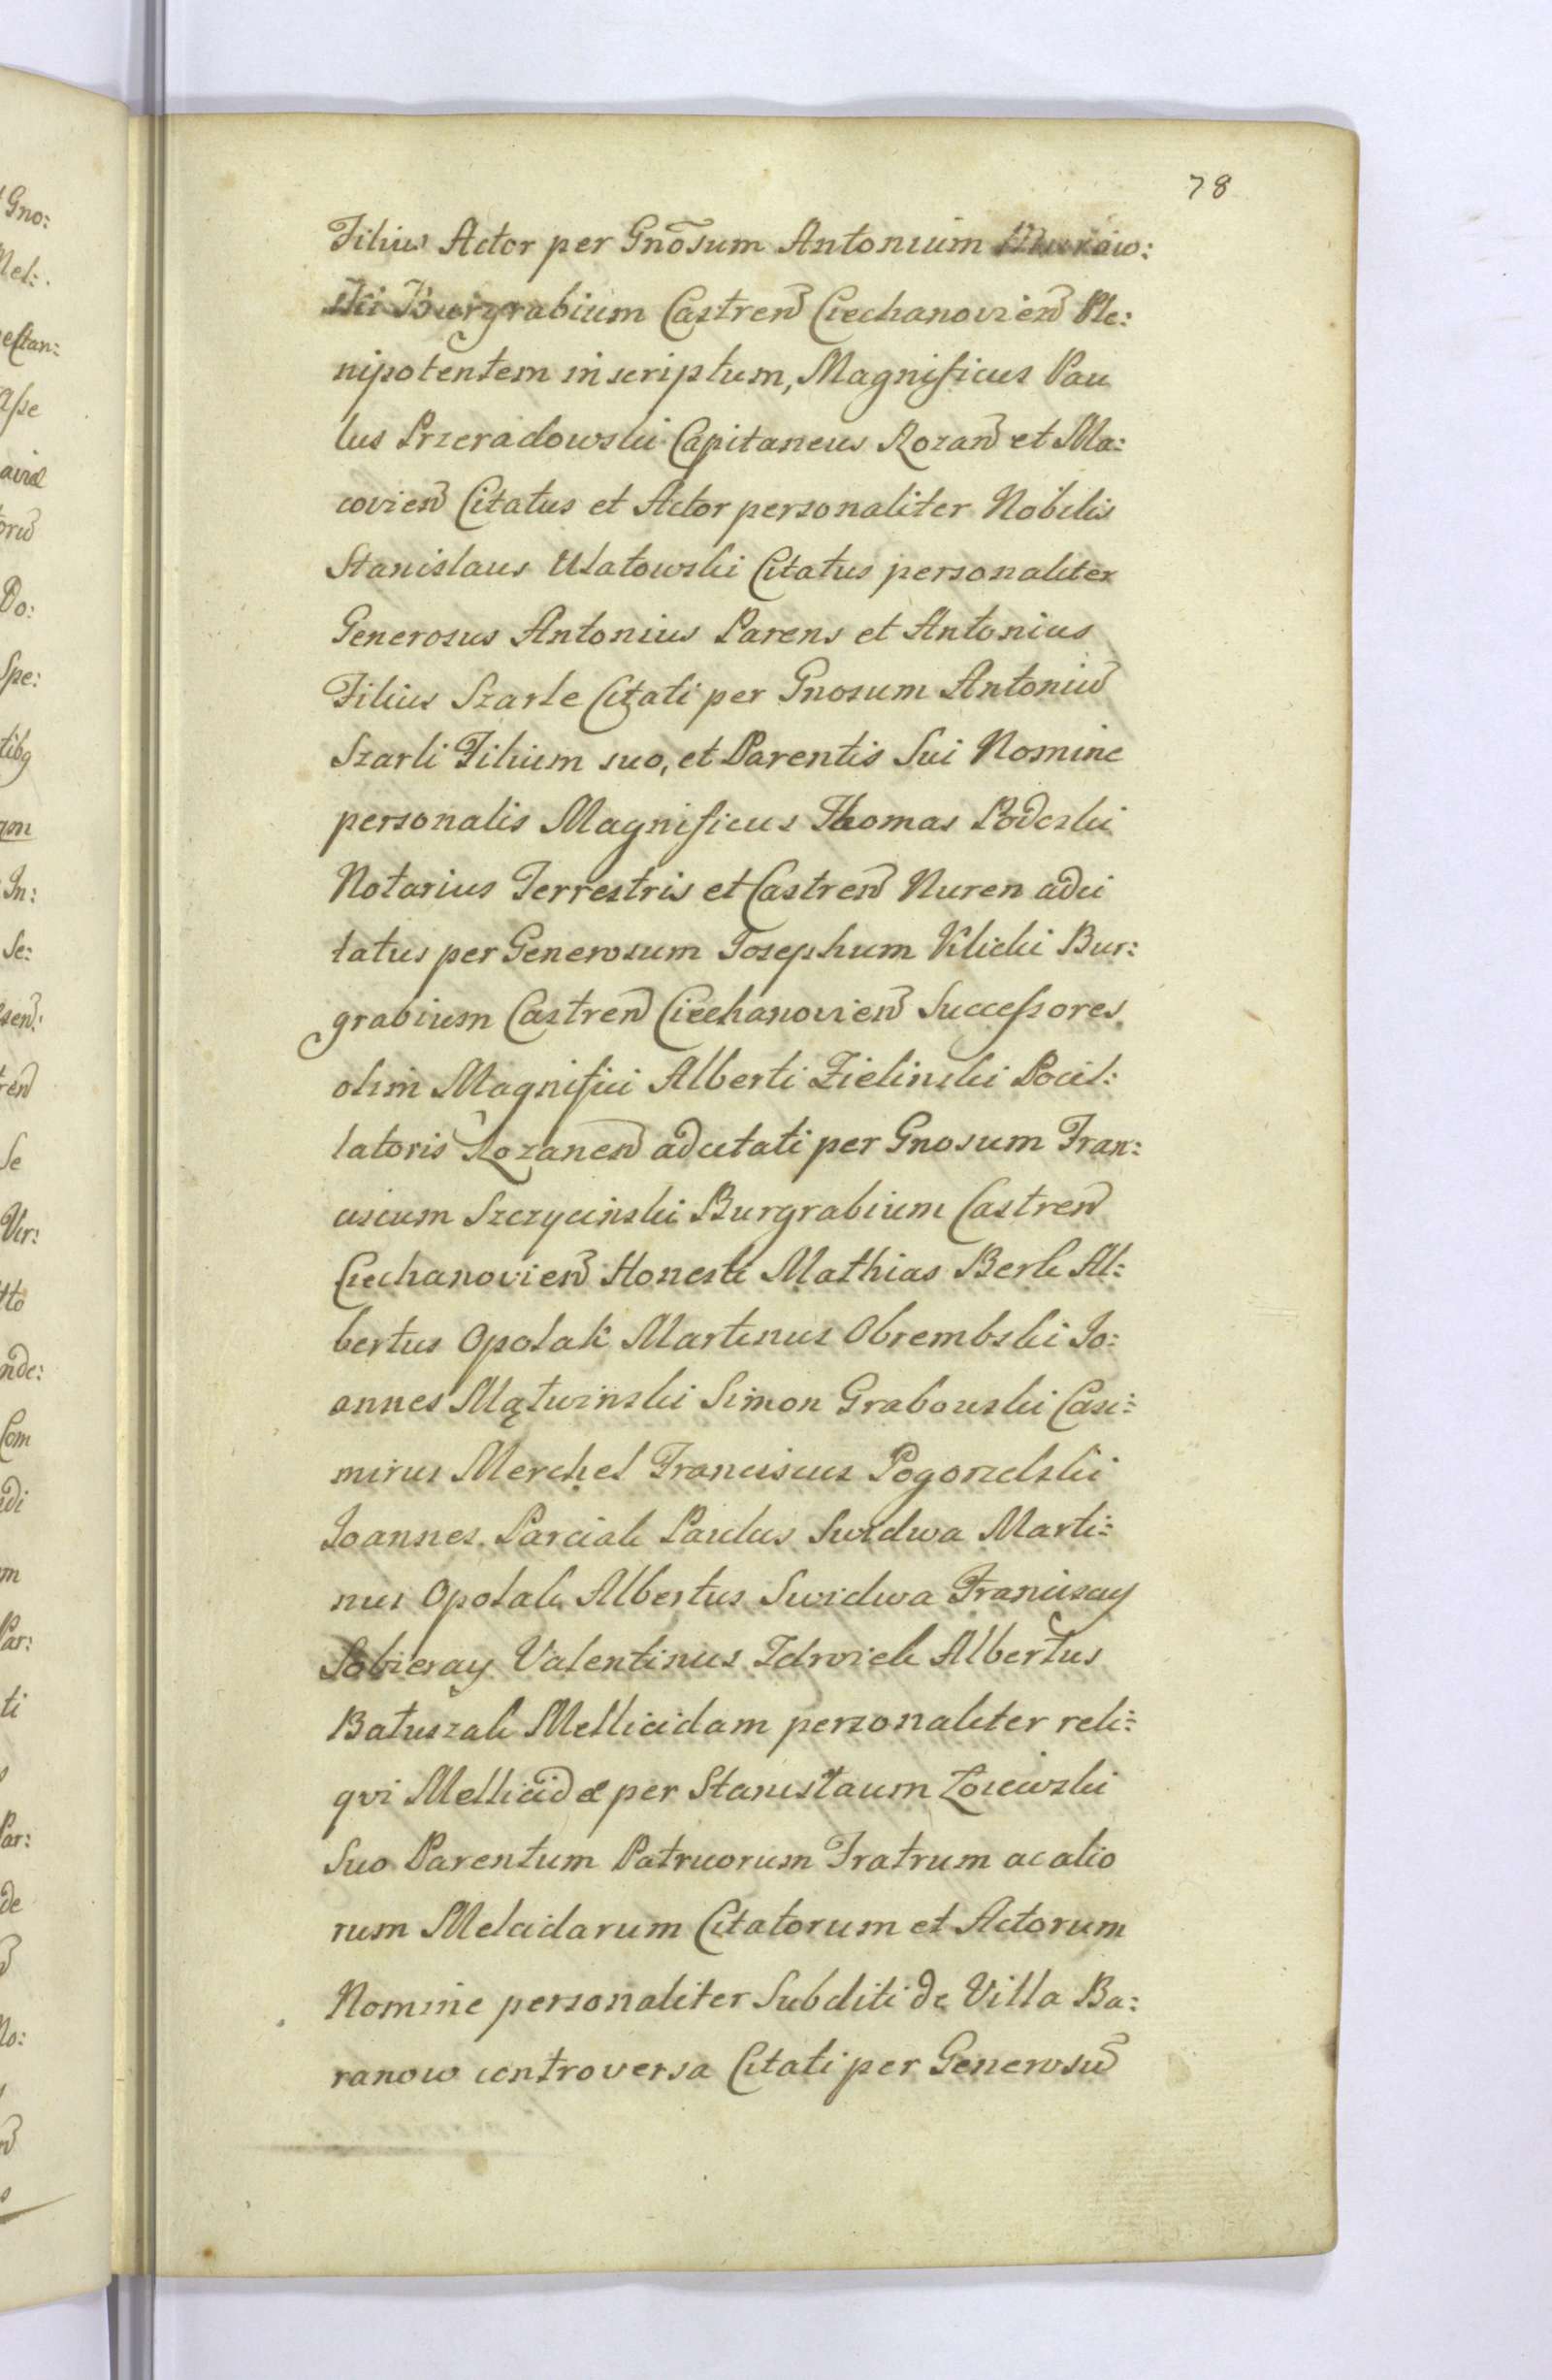 78
Filius Actor per Gnõsum Antonium
ski Burgrabium Castren̄ Ciechanovien̄ Ple:
nipotentem inscriptum, Magnificus Pau
lus Przeradowski Capitaneus Rozan̄ et Ma:
covien̄ Citatus et Actor personaliter Nobilis
Stanislaus Ulatowski Citatus personaliter
Generosus Antonius Parens et Antonius
Filius Szarle Citati per Gnosum Antoniū
Szarli Filium suo, et Parentis Sui Nomine
personalis Magnificus Thomas Podoski
Notarius Terrestris et Castren̄ Nuren adci
tatus per Generosum Josephum Klicki Bur:
grabium Castren̄ Ciechanovien̄ Successores
olim Magnifici Alberti Zielinski Pocil:
latoris Rozanen̄ adcitati per Gnosum Fran:
ciscum Szczycinski Burgrabium Castren̄
Ciechanovien̄ Honesti Mathias Berk Al:
bertus Opolak Martinus Obrembski Jo:
annes Mątwinski Simon Grabowski Casi:
mirus Merchel Franciscus Pogorzelski
Joannes Parciak Paulus Swidwa Marti:
nus Opolak Albertus Swidwa Franciscus
Sobieray Valentinus Albertus
Batuszak Mellicidam personaliter reli:
qvi Mellicidæ per Stanislaum
Suo Parentum Patruorum Fratrum ac alio
rum Melcidarum Citatorum et Actorum
Nomine personaliter Subditi de Villa Ba:
ranow controversa Citati per Generosū
Gno:
Mel:
estan:
Do:
Spe:
tibq
In:
Se:
ren̄
Se
Ver:
tto
nde:
Com
di
m
Par:
ti
Par:
de
No: